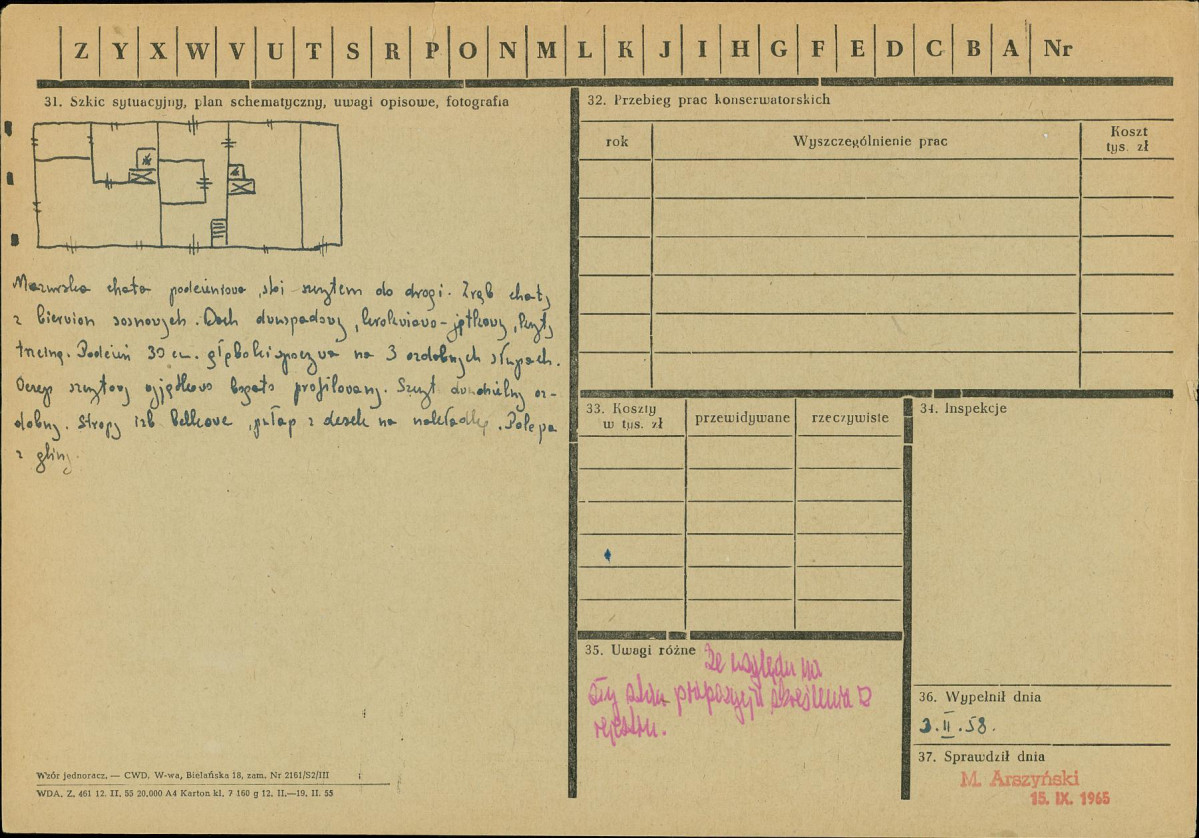 Z Y X W V U T S R P O N M L K J I H G F E D C B A Nr
31. Szkic sytuacyjny, plan schematyczny, uwagi opisowe, fotografia
Mazurska chata podcieniowa, stoi szczytem do drogi. Zrąb chaty
z bierwion sosnowych. Dach dwuspadowy, krokwiowo-jętkowy, kryty
trzciną. Podcień 30 cm. głęboki spoczywa na 3 ozdobnych słupach.
Oczep szczytowy wyjątkowo bogato profilowany. Szczyt dwudzielny oz-
dobny. Stropy izb belkowe, pułap z desek na nakładkę. Polepa
z gliny.
32. Przebieg prac konserwatorskich
rok
Wyszczególnienie prac
Koszt
tys. zł
33. Koszty
w tys. zł
przewidywane
rzeczywiste
34. Inspekcje
35. Uwagi różne
Ze względu na
zły stan propozycja skreślenia z
rejestru.
36. Wypełnił dnia
3.II.58.
37. Sprawdził dnia
M. Arszyński
15. IX. 1965
Wzór jednoracz. — CWD, W-wa, Bielańska 18, zam. Nr 2161/S2/III
WDA. Z. 461 12. II. 55 20.000 A4 Karton kl. 7 160 g 12. II.—19. II. 55